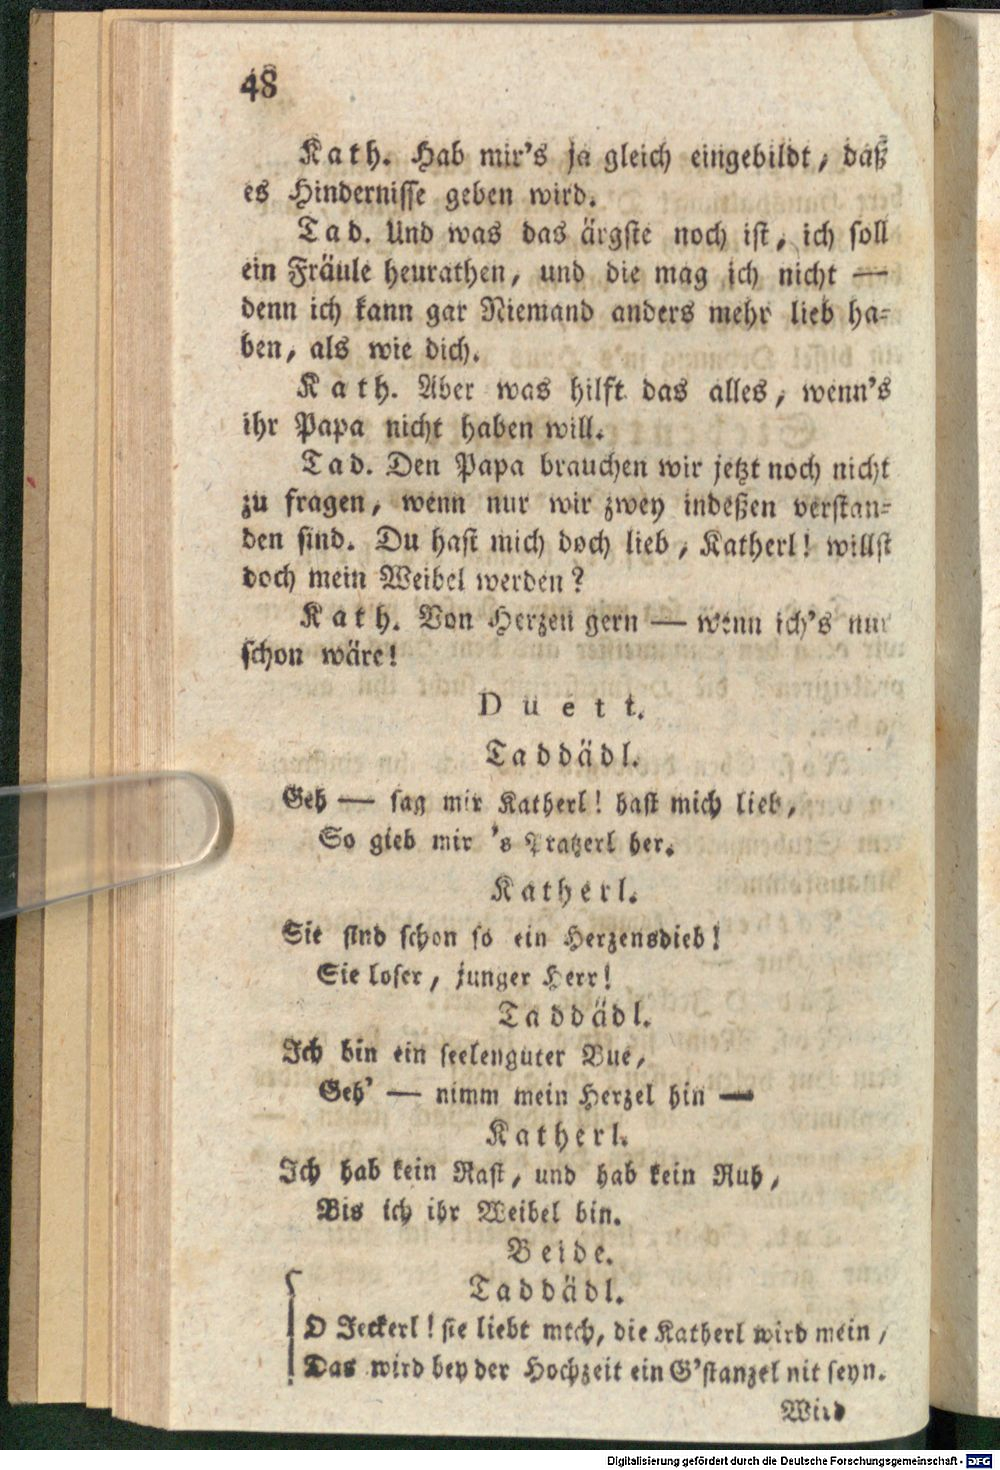 48
Kath. Hab mir's ja gleich eingebildt, daß
es Hindernisse geben wird.
Tad. Und was das ärgste noch ist, ich soll
ein Fräule heurathen, und die mag ich nicht —
denn ich kann gar Niemand anders mehr lieb ha=
ben, als wie dich.
Kath. Aber was hilft das alles, wenn's
ihr Papa nicht haben will.
Tad. Den Papa brauchen wir jetzt noch nicht
zu fragen, wenn nur wir zwey indeßen verstan=
den sind. Du hast mich doch lieb, Katherl! willst
doch mein Weibel werden?
Kath. Von Herzen gern — wenn ich's nur
schon wäre!
Duett.
Taddädl.
Geh — sag mir Katherl! hast mich lieb,
So gieb mir 's Pratzerl her.
Katherl.
Sie sind schon so ein Herzensdieb!
Sie loser, junger Herr!
Taddädl.
Ich bin ein seelenguter Bue,
Geh' — nimm mein Herzel hin —
Katherl.
Ich hab kein Rast, und hab kein Ruh,
Bis ich ihr Weibel bin.
Beide.
Taddädl.
O Jeckerl! sie liebt mich, die Katherl wird mein,
Das wird bey der Hochzeit ein G'stanzel nit seyn.
Wird
Digitalisierung gefördert durch die Deutsche Forschungsgemeinschaft - DFG